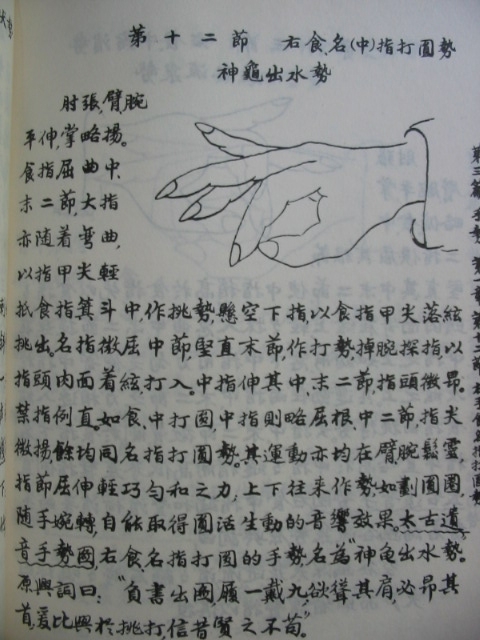 第十二節 右食、名(中)指打圓勢
神龜出水勢
肘張,臂,腕
平伸,掌略揚。
食指屈曲中、
末二節,大指
亦随着弯曲,
以指甲尖輕
抵食指箕斗中作挑勢,懸空下指以食指甲尖落絃
挑出。名指微屈中節,堅直末節作打勢掉腕探指以
指頭肉面着絃,打入。中指伸其中、末二節,指頭微昂。
禁指例直。如食、中打圓中指則略屈根、中二節,指尖
微揚餘均同名指打圓勢。其運動亦均在臂腕鬆靈,
指節屈伸輕巧勻和之力,上下往来作勢如劃圓圈,
随手婉轉,自能取得圓活生動的音響效果。太古遺
音手勢圖,右食名指打圓的手勢,名為“神龟出水勢。
原興詞曰:“負書出圖履一戴九,欲聳其肩,必昂其
首,爰比興於挑打,信昔賢之不苟。”